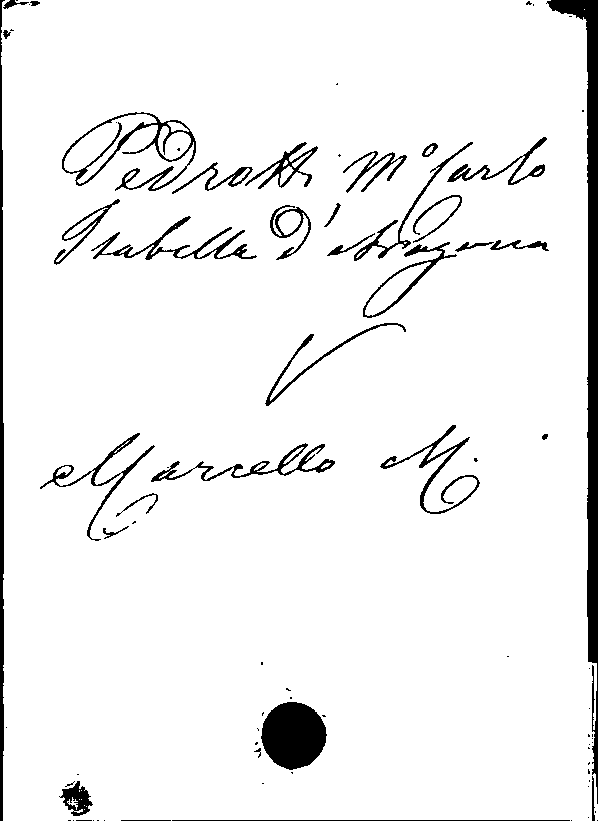 Pedrotti Mº Carlo
Isabella d'Aragona
V
Marcello M.